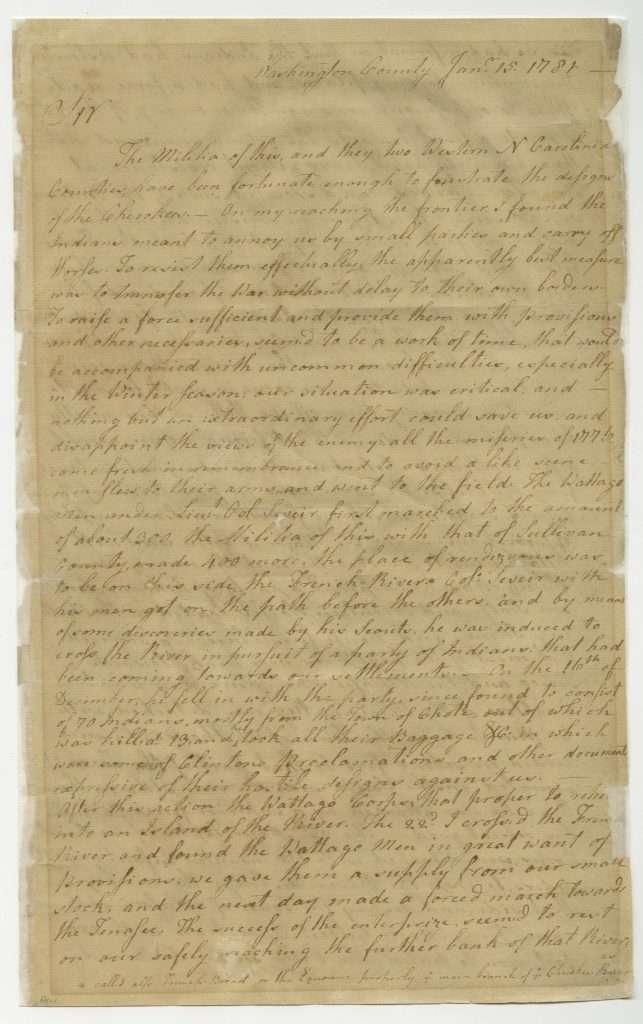 Washington County Jan.y 15. 1781 —
Sir
The Militia of this, and they two Western N Carolina
Counties, have been fortunate enough to frustrate the designs
of the Cherokees. — On my reaching the frontier, I found the
Indians meant to annoy us by small parties and carry off
Horses. To resist them effectually, the apparently best measure
was to transfer the War without delay to their own borders.
To raise a force sufficient, and provide them with provisions
and other necessaries, seem'd to be a work of time, that would
be accompanied with uncommon difficulties, especially
in the Winter season: our situation was critical, and —
nothing but an extraordinary effort could save us, and
disappoint the views of the enemy. all the miseries of 1776
came fresh in remembrance, and to avoid a like scene
men flew to their arms, and went to the field. The Wattago
Men under Lieu.t Col. Seveir first marched to the amount
of about 300. the Militia of this, with that of Sullivan
County, made 400 more. the place of rendezvous was
to be on this side the French River. Col.o Seveir with
his men got on the path before the others, and by means
of some discoveries made by his Scouts, he was induced to
cross the River in pursuit of a party of Indians, that had
been coming towards our settlements. — On the 16th of
December, he fell in with the party, since found to consist
of 70 Indians, mostly from the Town of Chote, out of which
was killed 13, and took all their Baggage &c. in which
were some of Clintons Proclamations and other documents
expressive of their hostile designs against us. —
After this action the Wattago Corps, that proper to retire
into an Island of the River. The 22.d I cross'd the French
River, and found the Wattago Men in great want of
Provisions. we gave them a supply from our small
stock, and the next day made a forced march towards
the Tenasee. The success of the enterprize, seem'd to rest
on our safely reaching the further bank of that River,
a call'd also French Broad or the properly main branch of River